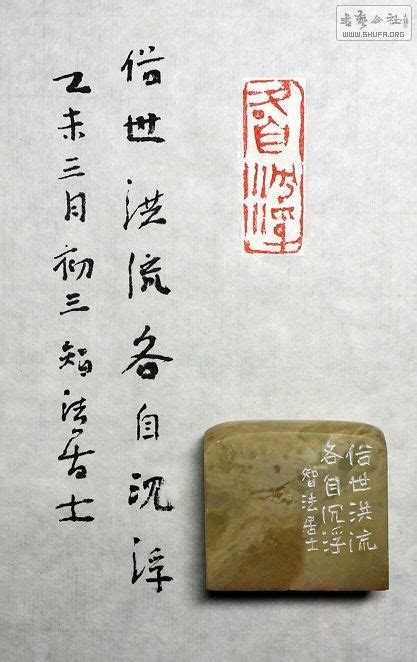 WWW.SHUFA.ORG
各自沉浮
俗世洪流各自沉浮
乙未三月初三智法居士
俗世洪流
各自沉浮
智法居士